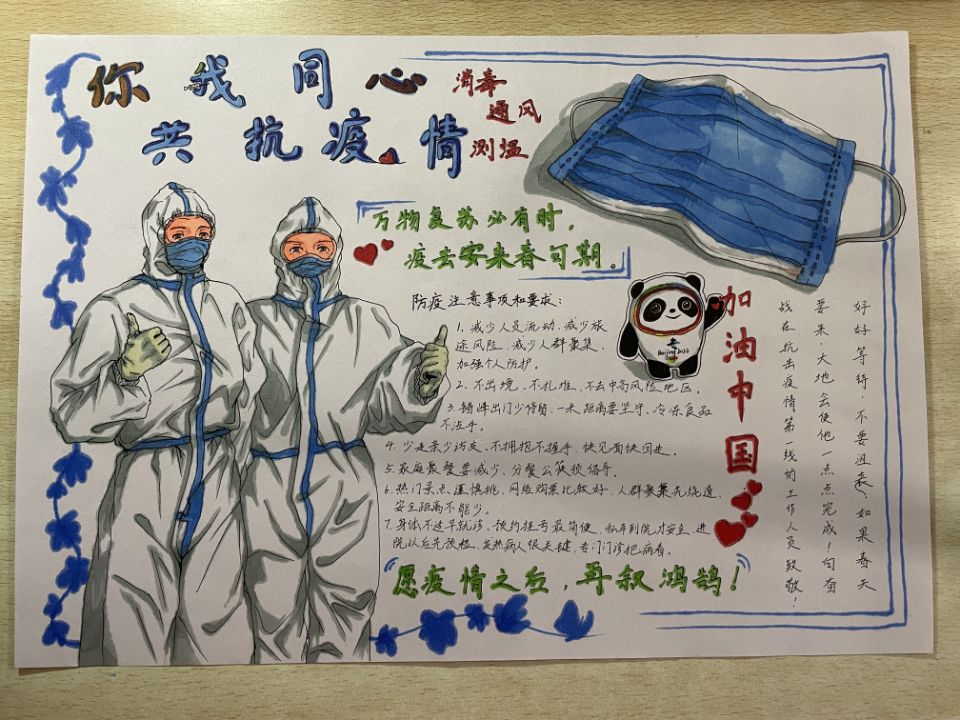 你我同心
共抗疫情
消毒
通风
测温
万物复苏必有时，
疫去安来春可期。
防疫注意事项和要求：
1、减少人员流动、减少旅
途风险、减少人群聚集、
加强个人防护。
2、不出境、不扎堆、不去中高风险地区。
3、错峰出门少停留、一米距离要坚守、冷冻食品
不沾手。
4、少走亲少访友、不拥抱不握手、快见面快回走。
5、家庭聚餐要减少、分餐公筷须倡导。
6、热门景点谨慎挑、网络购票比较好、人群聚集先绕道、
安全距离不能少。
7、身体不适早就诊、预约挂号最简便、私车到院才安全、进
院以后先预检、发热病人很关键、专门门诊把病看。
愿疫情之后，再叙鸿鹄！
Beijing 2022
加油中国
好好等待，不要沮丧，如果春天
要来，大地会使他一点点完成！向奋
战在抗击疫情第一线的工作人员致敬！